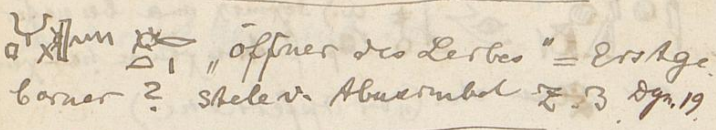 „öffner des Leibes“ = Erstge
borner ? Stele v. Abusimbel Z. 3 Dyn. 19.